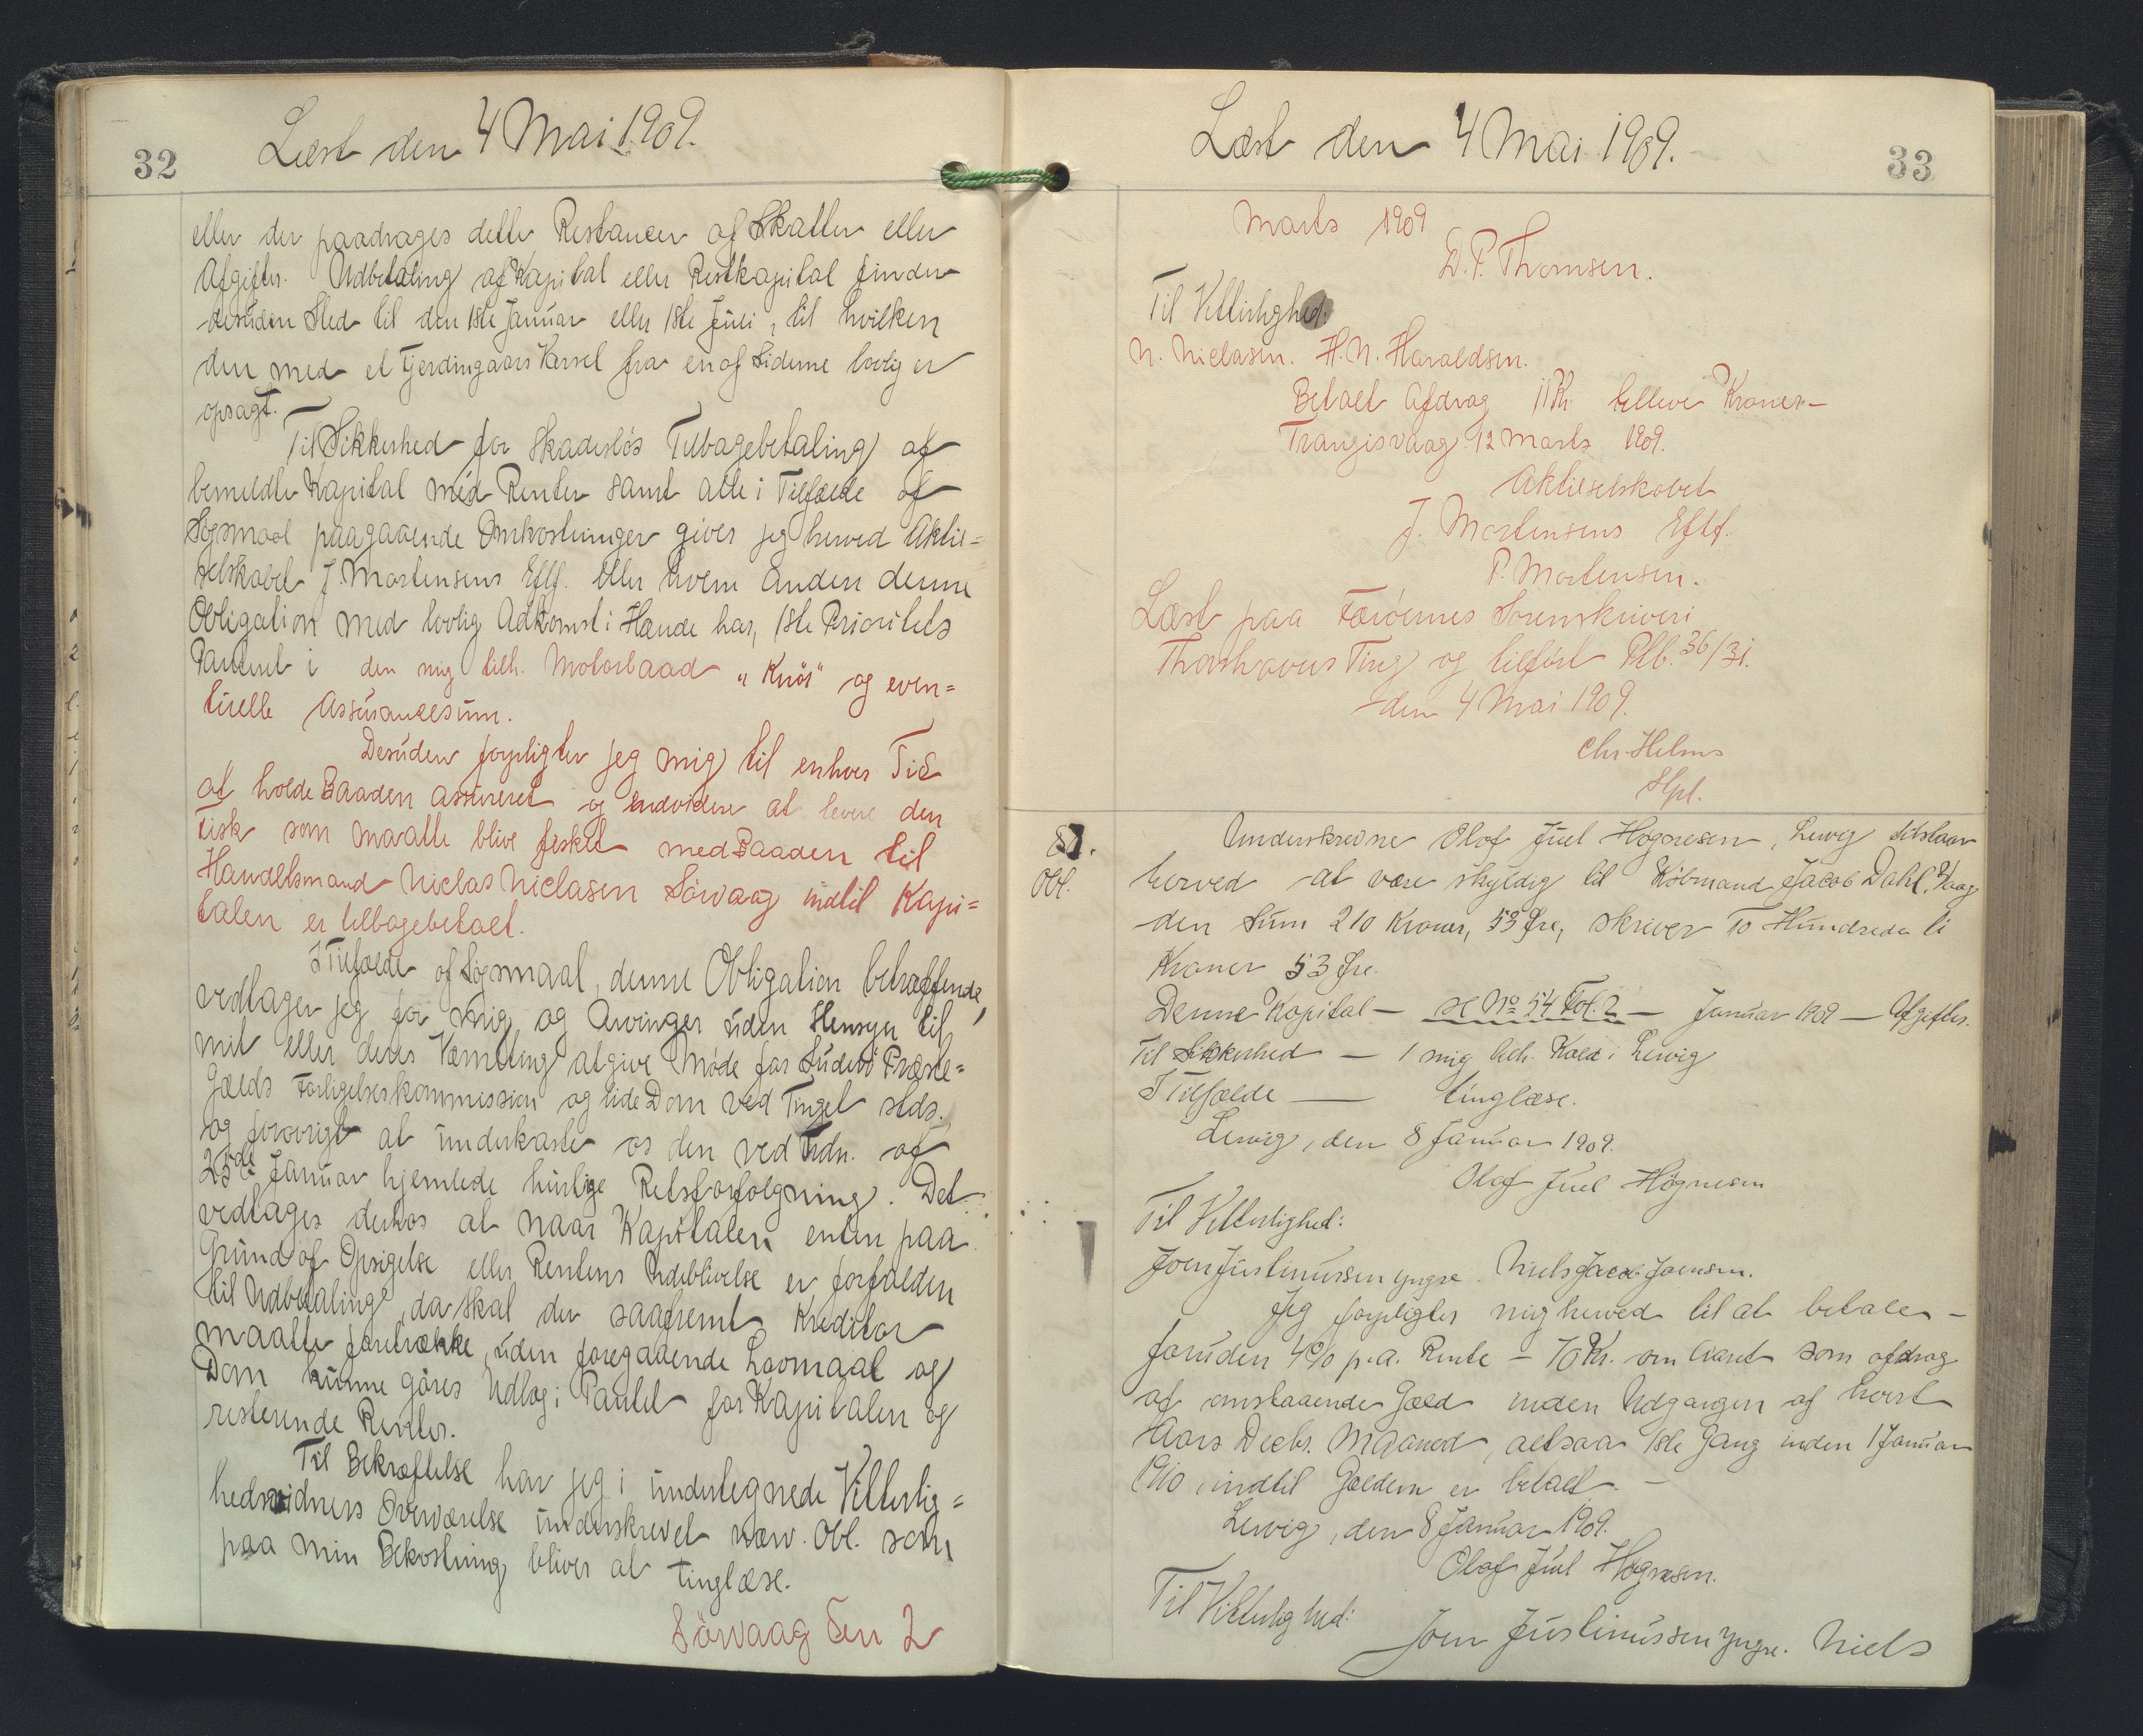 32
Læst den 4 Mai 1909.
eller der paadrages dette Restancer af Skatter eller
Afgifter. Udbetaling af Kapital eller Restkapital finder
desuden Sted til den 1ste Januar eller 1ste Juli, til hvilken
den med et Fjerdingaars Varsel fra en af Siderne lovlig er
opsagt.
Til Sikkerhed for skadeslös Tilbagebetaling af
bemeldte Kapital med Renter samt alle i Tilfælde af
Sögsmaal paagaaende Omkostninger giver jeg herved Aktie=
selskabet J. Mortensens Eftf. eller hvem anden denne
Obligation med lovlig Adkomst i Hænde har, 1ste Prioritets
Panteret i den mig tilh. Motorbaad "Knös" og even=
tuelle Assurancesum.
Desuden forpligter jeg mig til enhver Tid
at holde Baaden assureret og endvidere at levere den
Fisk som maatte blive fisket med Baaden til
Handelsmand Niclas Niclasen Sörvaag indtil Kapi=
talen er tilbagebetalt.
I Tilfælde af Sögsmaal, denne Obligation betræffende,
vedtager jeg for mig og Arvinger uden Hensyn til
mit eller deres Værneting at give Möde for Suderö Præste=
gjælds Forligelseskommission og lide Dom ved Tinget stds.
og forövrigt at underkaste os den ved Frdn. af
25de Januar hjemlede hurtige Retsforfölgning. Det
vedtages derhos at naar Kapitalen enten paa
Grund af Opsigelse eller Rentens Udeblivelse er forfalden
til Udbetaling, da skal der saafremt Kreditor
maatte foretrække, uden foregaaende Lovmaal og
Dom kunne göres Udlæg i Pantet for Kapitalen og
resterende Renter.
Til Bekræftelse har jeg i undertegnede Vitterlig=
hedsvidners Overværelse underskrevet nærv. Obl. som
paa min Bekostning bliver at tinglæse.
Sörvaag den 2
Læst den 4 Mai 1909.
33
Marts 1909
D. P. Thomsen.
Til Vitterlighed:
N. Niclasen. H. N. Haraldsen.
Betalt Afdrag 11 Kr. Elleve Kroner-
Trangisvaag 12 Marts 1909.
Aktieselskabet
J. Mortensens Eftf.
P. Mortensen.
Læst paa Færöernes Sorenskriveri
Thorshavns Ting og tilfört Ptb. 36/31.
den 4 Mai 1909.
Chr. Helms
Hpl.
Obl.
Underskrevne Olof Juel Högnesen, Lervig tilstaar
herved at være skyldig til Köbmand Jacob Dahl, Vaag
den Sum 210 Kroner, 53 Øre, skriver To Hundrede ti
Kroner 53 Øre.
Denne Kapital — se No 54 Fol. 2 — Januar 1909 — Afgifter.
Til Sikkerhed — 1 mig tilh. Kold i Lervig
I Tilfælde — tinglæse.
Lervig, den 8 Januar 1909.
Olof Juel Högnesen
Til Vitterlighed:
Joen Justinussen yngre. Niels Jacob Joensen.
Jeg forpligter mig herved til at betale -
foruden 4% p.a. Rente - 70 Kr. om Aaret som afdrag
af omstaaende Gæld inden Udgangen af hvert
Aars Decbr. Maaned, altsaa 1ste Gang inden 1 Januar
1910, indtil Gælden er betalt. -
Lervig, den 8 Januar 1909.
Olof Juel Högnesen.
Til Vitterlighed:
Joen Justinussen yngre. Niels